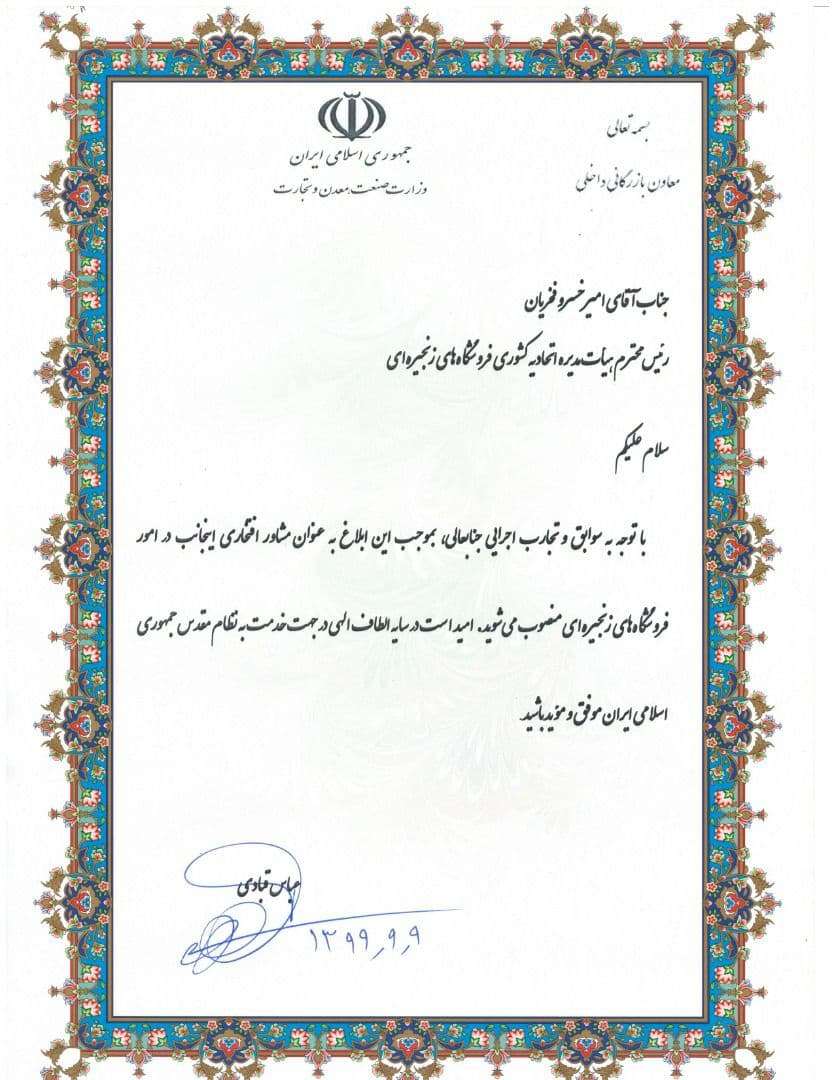 بسمه تعالی
معاون بازرگانی داخلی
جمهوری اسلامی ایران
وزارت صنعت، معدن و تجارت
جناب آقای امیر خسرو فخریان
رئیس محترم هیأت مدیره اتحادیه کشوری فروشگاه های زنجیره ای
سلام علیکم
با توجه به سوابق و تجارب اجرایی جنابعالی، بموجب این ابلاغ به عنوان مشاور افتخاری اینجانب در امور
فروشگاه های زنجیره ای منصوب می شوید. امید است در سایه الطاف الهی در جهت خدمت به نظام مقدس جمهوری
اسلامی ایران موفق و مؤید باشید.
عباس قبادی
۱۳۹۹٫۹٫۹